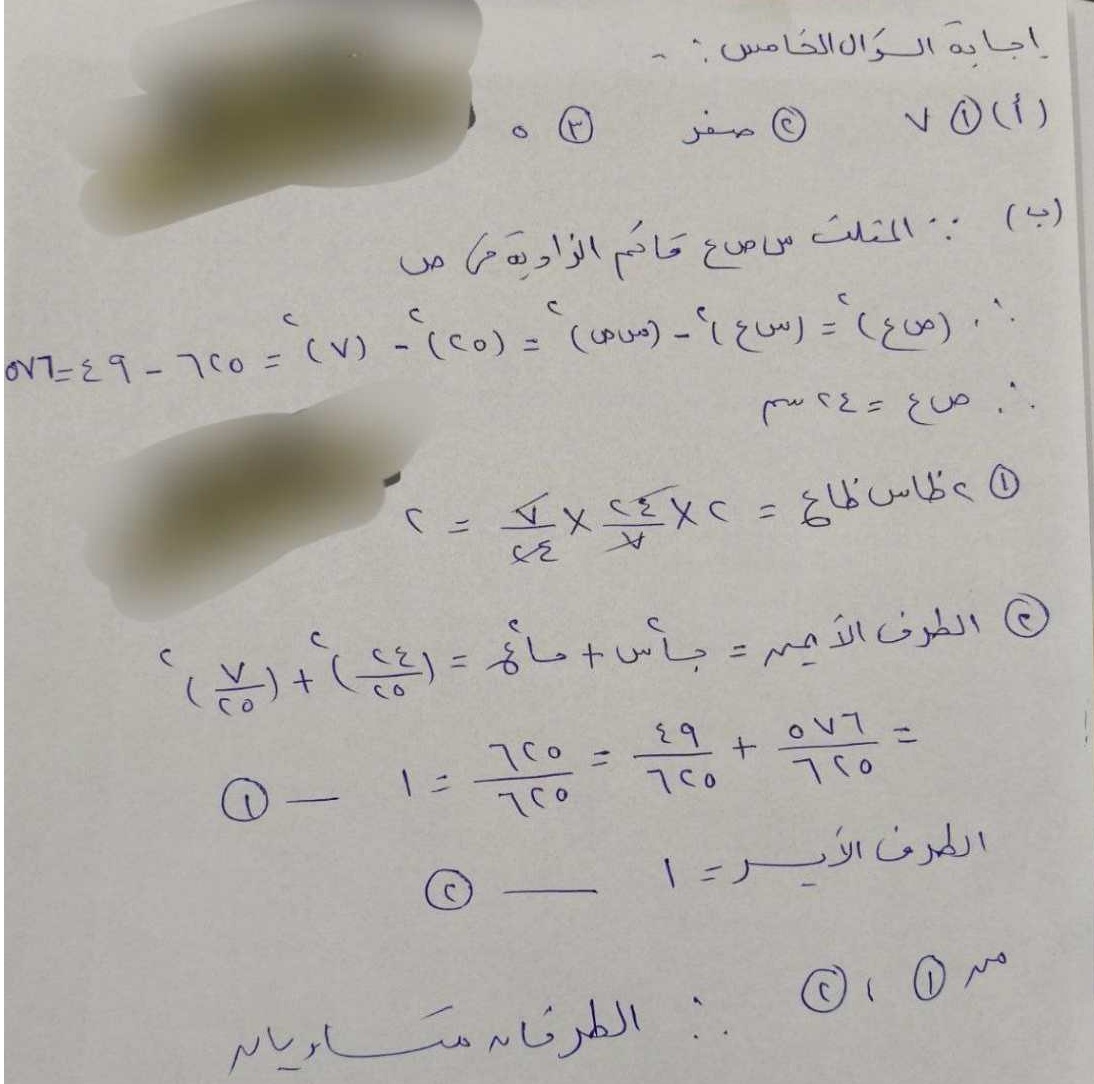 إجابة السؤال الخامس :-
(أ) ① ٧ ② صفر ③ ٥
(ب) ∵ المثلث س ص ع قائم الزاوية في ص
∴ (ص ع)² = (س ع)² - (س ص)² = (٢٥)² - (٧)² = ٦٢٥ - ٤٩ = ٥٧٦
∴ ص ع = ٢٤ سم
① ٢ ظاس ظاع = ٢ × ٢٤/٧ × ٧/٢٤ = ٢
② الطرف الأيمن = جا²س + جا²ع = (٢٤/٢٥)² + (٧/٢٥)²
= ٥٧٦/٦٢٥ + ٤٩/٦٢٥ = ٦٢٥/٦٢٥ = ١ — ①
الطرف الأيسر = ١ — ②
من ① ، ② ∴ الطرفان متساويان